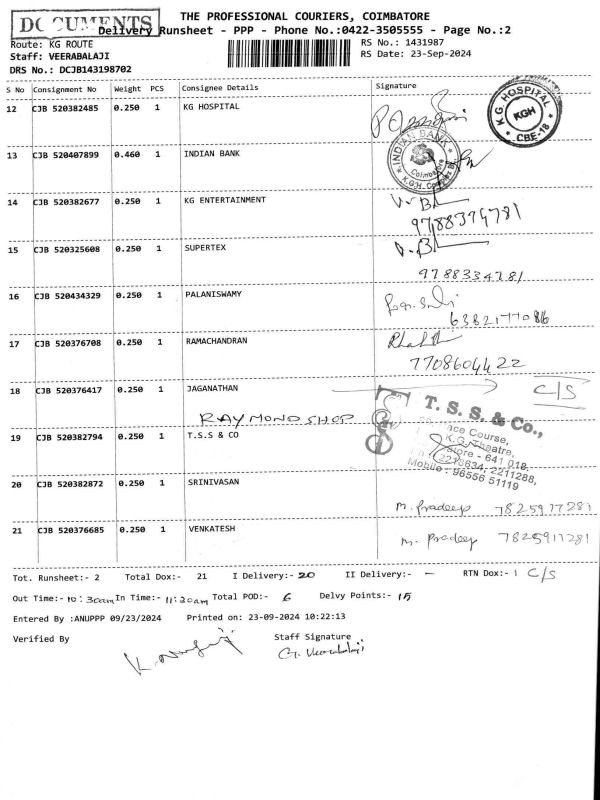 DOCUMENTS
THE PROFESSIONAL COURIERS, COIMBATORE
Delivery Runsheet - PPP - Phone No.:0422-3505555 - Page No.:2
Route: KG ROUTE
RS No.: 1431987
Staff: VEERABALAJI
RS Date: 23-Sep-2024
DRS No.: DCJB143198702
S No Consignment No Weight PCS Consignee Details Signature
12 CJB 520382485 0.250 1 KG HOSPITAL
KG HOSPITAL
KGH
* CBE-18 *
13 CJB 520407899 0.460 1 INDIAN BANK
INDIAN BANK
Coimbatore
14 CJB 520382677 0.250 1 KG ENTERTAINMENT
9788334781
15 CJB 520325608 0.250 1 SUPERTEX
9788334781
16 CJB 520434329 0.250 1 PALANISWAMY
6382177086
17 CJB 520376708 0.250 1 RAMACHANDRAN
7708604422
18 CJB 520376417 0.250 1 JAGANATHAN
C/S
RAYMOND SHOP
19 CJB 520382794 0.250 1 T.S.S & CO
T. S. S. & Co.,
ace Course,
K.G. Theatre,
store - 641 018.
2210634, 2211288,
Mobile : 96556 51119
20 CJB 520382872 0.250 1 SRINIVASAN
M. Pradeep 7825917281
21 CJB 520376685 0.250 1 VENKATESH
M. Pradeep 7825917281
Tot. Runsheet:- 2 Total Dox:- 21 I Delivery:- 20 II Delivery:- - RTN Dox:- 1 C/S
Out Time:- 10:30am In Time:- 11:20am Total POD:- 6 Delvy Points:- 15
Entered By :ANUPPP 09/23/2024 Printed on: 23-09-2024 10:22:13
Verified By
Staff Signature
G. Veerabalaji